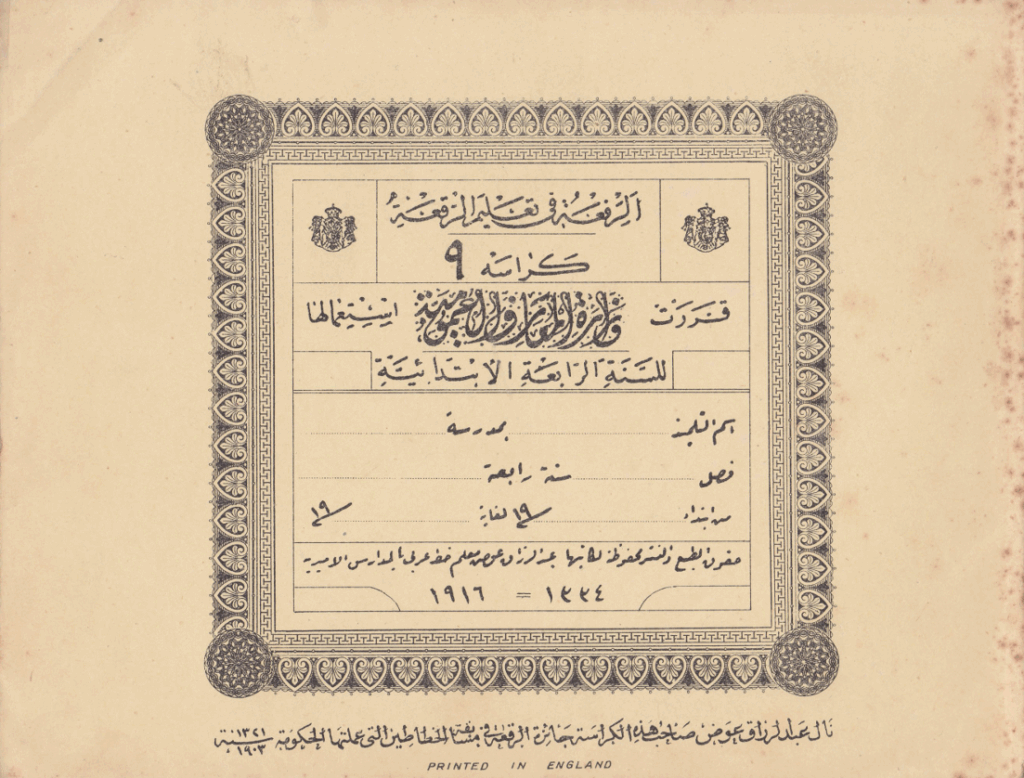 الرفعة في تعليم الرقعة
كراسه ٩
قررت وزارة المعارف العمومية استعمالها
للسنة الرابعة الابتدائية
اسم التلميذ ........ بمدرسة ........
فصل ........ سنة رابعة ........
من ابتداء ........ ١٩ لغاية ........ ١٩
حقوق الطبع والنشر محفوظة لكاتبها عبد الرزاق عوض معلم خط عربي بالمدارس الاميرية
١٣٣٤ = ١٩١٦
نال عبد الرزاق عوض صاحب هذه الكراسة جائزة الرقعة في مسابقة الخطاطين التي عملتها الحكومة سنة ١٣٢١ ١٩٠٣
PRINTED IN ENGLAND